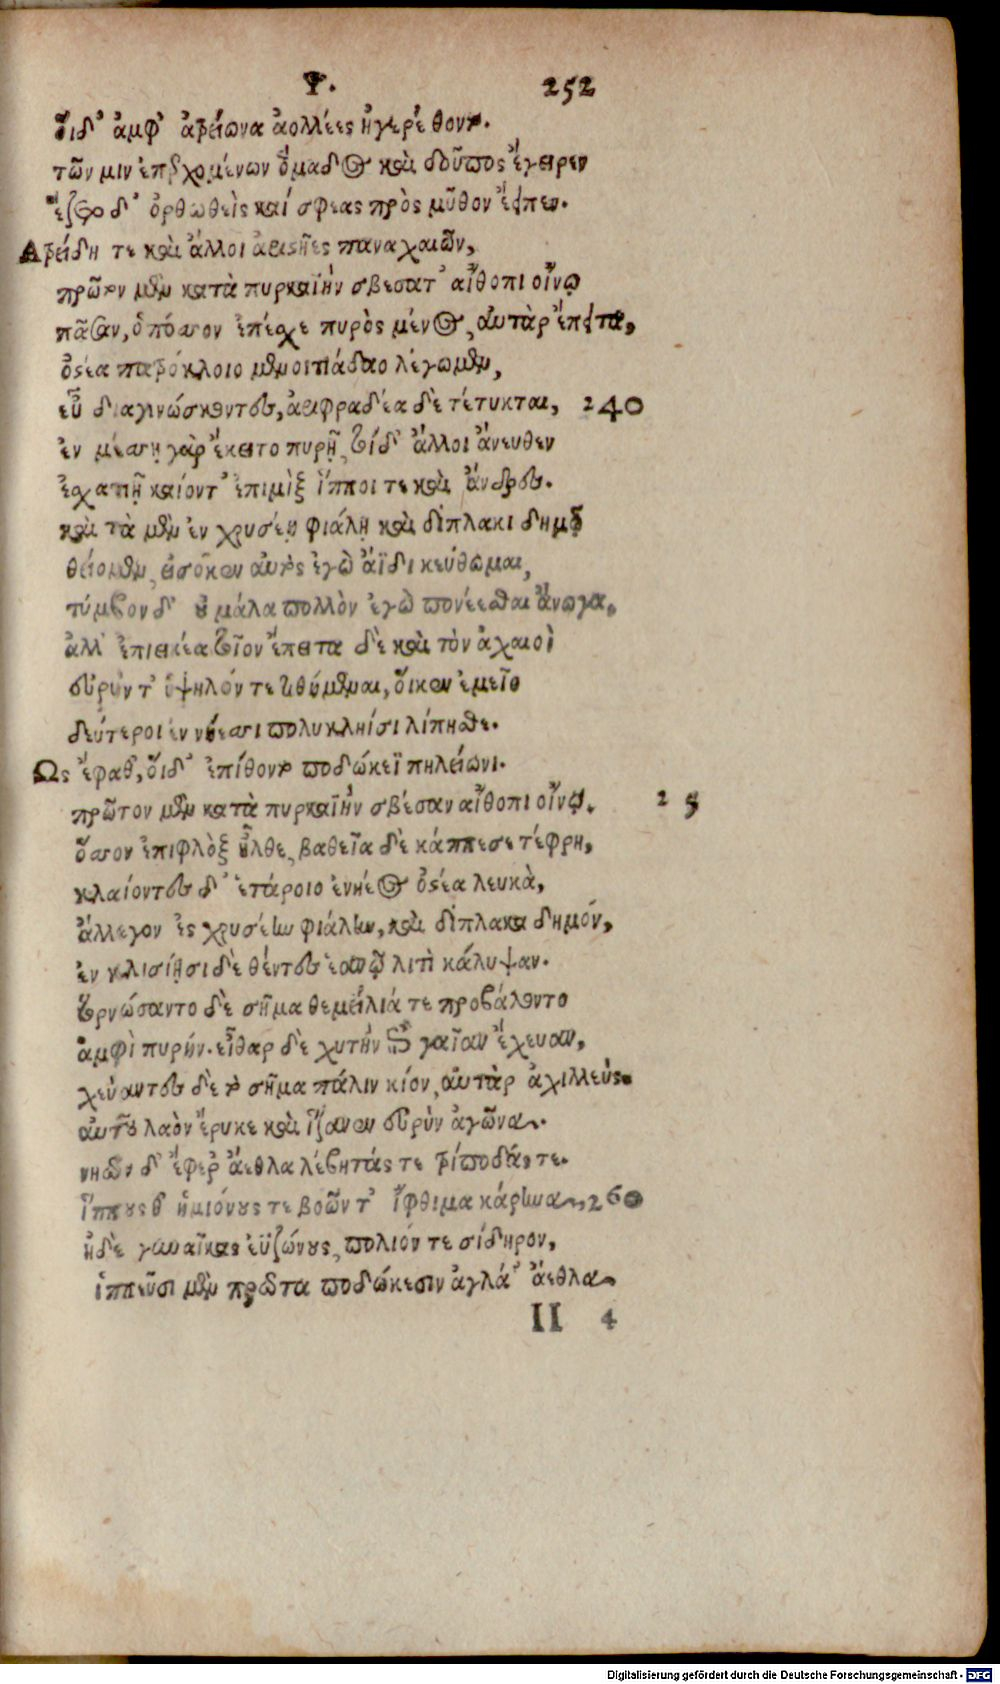 Ψ. 252
οἵδ' ἀμφ' ἀτρείωνα ἀολλέες ἠγερέθοντο.
τῶν μιν ἐπερχομένων ὅμαδος καὶ δοῦπος ἔγειρεν
ἕζετο δ' ὀρθωθεὶς καί σφεας πρὸς μῦθον ἔειπεν.
Ἀτρείδη τε καὶ ἄλλοι ἀριστῆες παναχαιῶν,
πρῶτον μὲν κατὰ πυρκαϊὴν σβεσατ' αἴθοπι οἴνῳ
πᾶσαν, ὁπόσσον ἐπέσχε πυρὸς μένος, αὐτὰρ ἔπειτα,
ὀστέα πατρόκλοιο μενοιτιάδαο λέγωμεν,
εὖ διαγινώσκοντες, ἀριφραδέα δὲ τέτυκται, 240
ἐν μέσσῃ γὰρ ἔκειτο πυρῇ, τοίδ' ἄλλοι ἄνευθεν
ἐσχατιῇ καίοντ' ἐπιμὶξ ἵπποι τε καὶ ἄνδρες.
καὶ τὰ μὲν ἐν χρυσέῃ φιάλῃ καὶ δίπλακι δημῷ
θείομεν, εἰσόκεν αὐτὸς ἐγὼ ἄϊδι κεύθωμαι,
τύμβον δ' οὐ μάλα πολλὸν ἐγὼ πονέεσθαι ἄνωγα,
ἀλλ' ἐπιεικέα τοῖον ἔπειτα δὲ καὶ τὸν ἀχαιοὶ
εὐρύν τ' ὑψηλόν τε τιθύμεναι, οἵκεν ἐμεῖο
δεύτεροι ἐν νήεσσι πολυκληίσι λίπησθε.
Ὣς ἔφαθ', οἵδ' ἐπίθοντο ποδώκεϊ πηλείωνι.
πρῶτον μὲν κατὰ πυρκαϊὴν σβέσαν αἴθοπι οἴνῳ. 2 5
ὅσσον ἐπιφλὸξ ἦλθε, βαθεῖα δὲ κάππεσε τέφρη,
κλαίοντες δ' ἑτάροιο ἐνηέος ὀστέα λευκὰ,
ἄλλεγον ἐς χρυσέην φιάλην, καὶ δίπλακα δημόν,
ἐν κλισίῃσι δὲ θέντες ἑανῷ λιτὶ κάλυψαν.
τορνώσαντο δὲ σῆμα θεμείλιά τε προβάλοντο
ἀμφὶ πυρήν. εἶθαρ δὲ χυτὴν ἐπὶ γαῖαν ἔχευαν,
χεύαντες δὲ τὸ σῆμα πάλιν κίον, αὐτὰρ ἀχιλλεύς.
αὐτοῦ λαὸν ἔρυκε καὶ ἵζανεν εὐρὺν ἀγῶνα.
νηῶν δ' ἔφερ' ἄεθλα λέβητάς τε τρίποδάς τε.
ἵππους θ' ἡμιόνους τε βοῶν τ' ἴφθιμα κάρηνα, 260
ἠδὲ γυναῖκας ἐϋζώνους, πολιόν τε σίδηρον,
ἱππεῦσι μὲν πρῶτα ποδώκεσιν ἀγλά' ἄεθλα
II 4
Digitalisierung gefördert durch die Deutsche Forschungsgemeinschaft - DFG